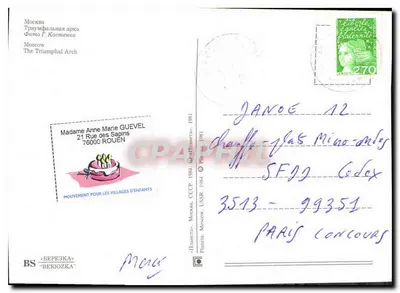 Москва
Триумфальная арка
Фото Г. Костенко
Moscow
The Triumphal Arch
2,70
Madame Anne Marie GUEVEL
21 Rue des Sapins
76000 ROUEN
MOUVEMENT POUR LES VILLAGES D'ENFANTS
BS «БЕРЕЗКА»
"BERIOZKA"
«Планета». Москва. СССР. 1984 © «Планета». 1981
Planeta. Moscow. USSR. 1984
JANOE 12
Chauffe-plats
Cedex
3513 - 99351
PARIS CONCOURS
Merci